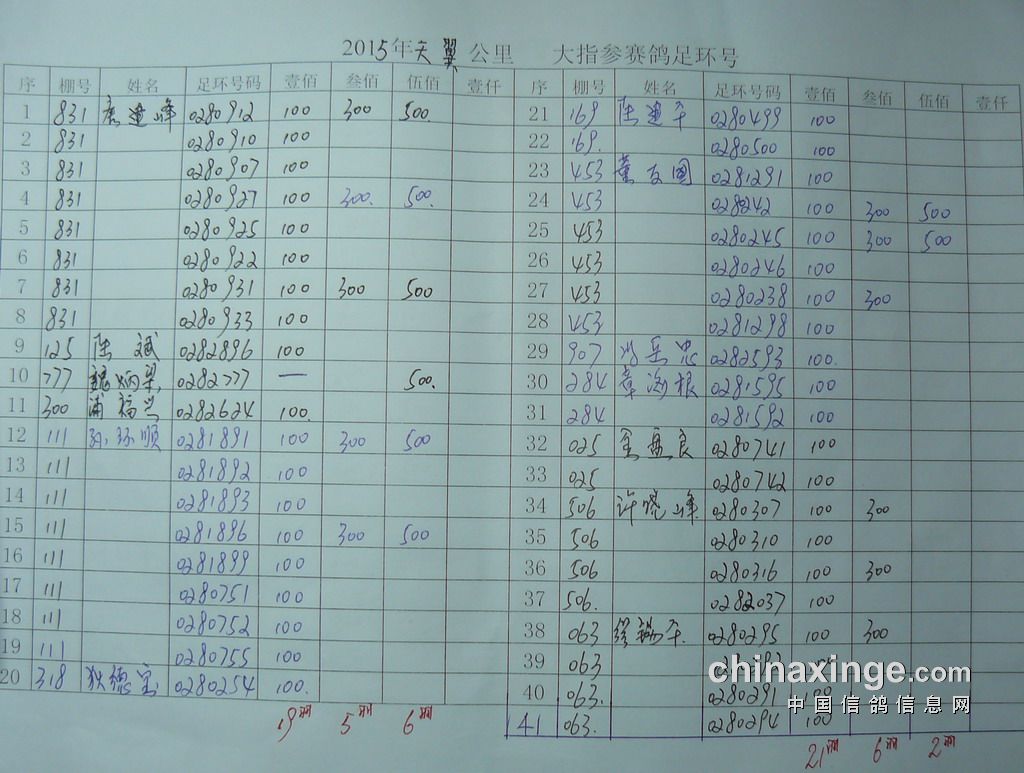 2015年天翼公里 大指参赛鸽足环号
序 棚号 姓名 足环号码 壹佰 叁佰 伍佰 壹仟
1 831 唐建峰 0280912 100 300 500
2 831 0280910 100
3 831 0280907 100
4 831 0280927 100 300. 500.
5 831 0280925 100
6 831 0280922 100
7 831 0280931 100 300 500
8 831 0280933 100
9 125 陆斌 0282896 100
10 777 魏炳梁 0282777 — 500.
11 300 浦福兴 0282624 100.
12 111 环顺 0281891 100 300 500
13 111 0281892 100
14 111 0281893 100
15 111 0281896 100 300 500
16 111 0281899 100
17 111 0280751 100
18 111 0280752 100
19 111 0280755 100
20 318 狄德宝 0280254 100.
19羽 5羽 6羽
序 棚号 姓名 足环号码 壹佰 叁佰 伍佰 壹仟
21 169 陆建平 0280499 100
22 169. 0280500 100
23 453 董友国 0281291 100
24 453 028242 100 300 500
25 453 0280245 100 300 500
26 453 0280246 100
27 453 0280238 100 300
28 453 0281298 100
29 907 岳忠 0282593 100.
30 284 章海根 0281595 100
31 284 0281592 100
32 025 金良 0280741 100
33 025 0280742 100
34 506 许晓峰 0280307 100 300
35 506 0280310 100
36 506 0280316 100 300
37 506. 0282037 100
38 063 缪锡平. 0280295 100 300
39 063
40 063. 0280291 100
41 063. 0280294 100
21羽 6羽 2羽
chinaxinge.com
中国信鸽信息网